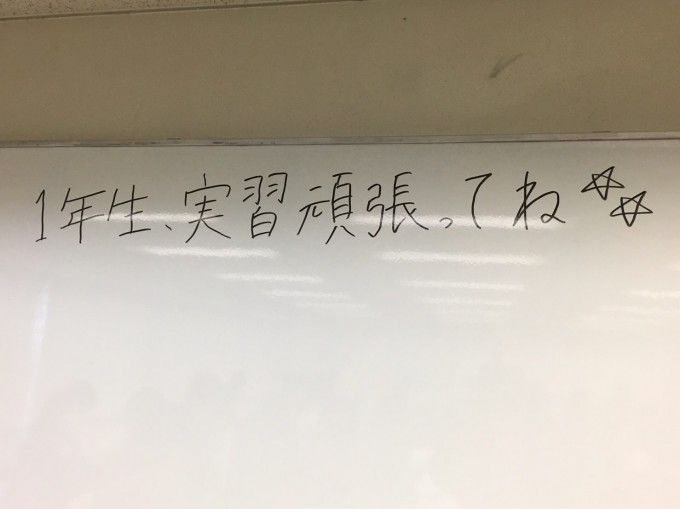 1年生、実習頑張ってね☆☆